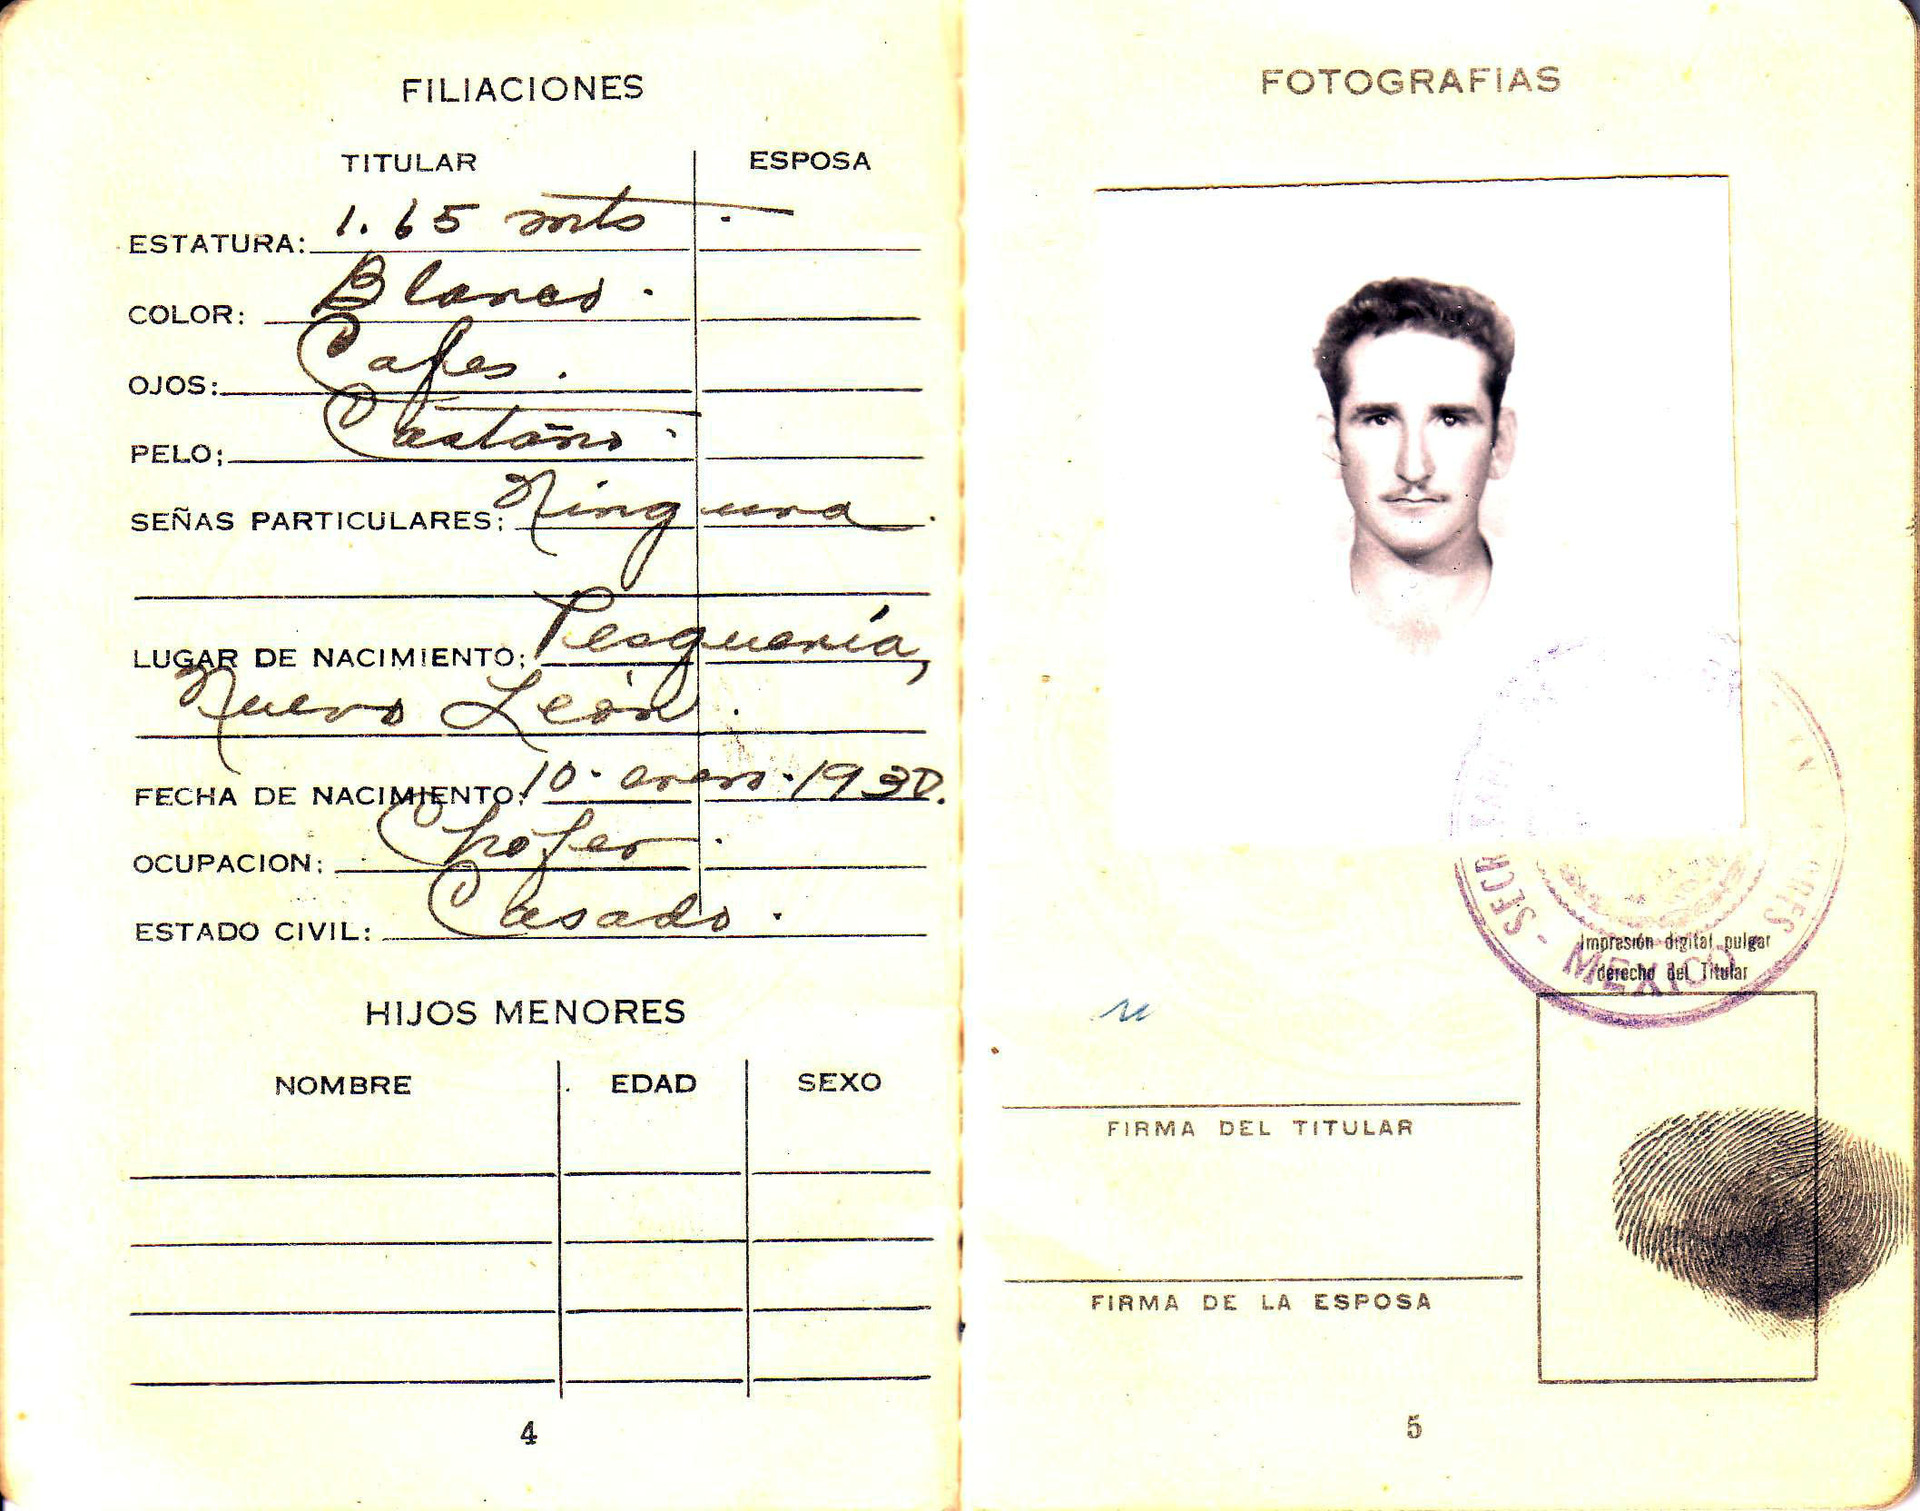 FILIACIONES
TITULAR ESPOSA
ESTATURA: 1.65 mts
COLOR: Blanco.
OJOS: Cafes.
PELO; Castaño.
SEÑAS PARTICULARES; Ninguna.
LUGAR DE NACIMIENTO; Pesquería,
Nuevo León.
FECHA DE NACIMIENTO; 10. enero. 1930.
OCUPACION: Chofer.
ESTADO CIVIL: Casado.
HIJOS MENORES
NOMBRE EDAD SEXO
4
FOTOGRAFIAS
MEXICO
Impresión digital pulgar
derecho del Titular
FIRMA DEL TITULAR
FIRMA DE LA ESPOSA
5